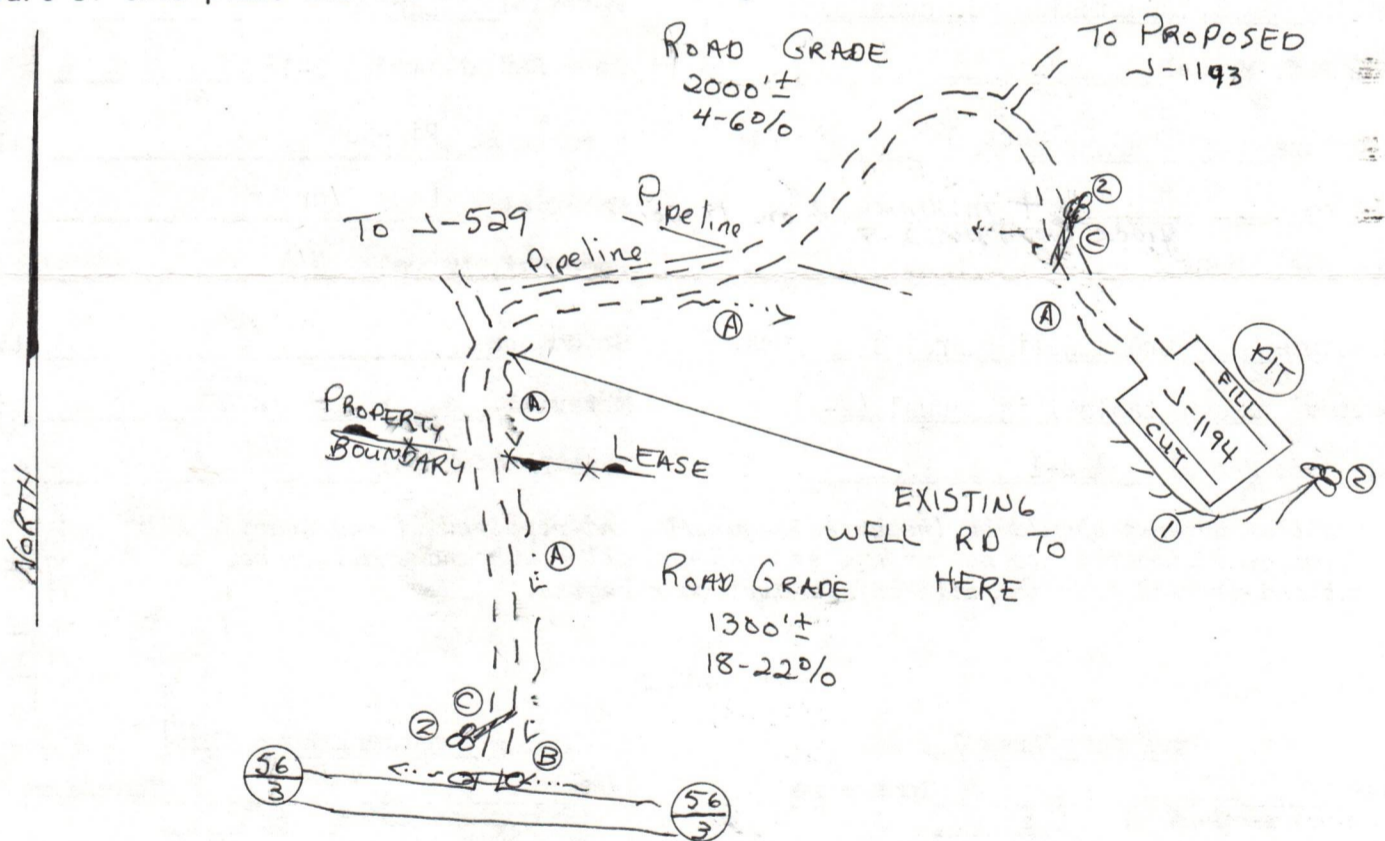 ROAD GRADE
2000'±
4-6%
TO PROPOSED
J-1193
TO J-529
Pipeline
Pipeline
②
Ⓒ
Ⓐ
Ⓐ
PIT
FILL
J-1194
CUT
②
①
Ⓐ
PROPERTY
BOUNDARY
LEASE
EXISTING
WELL RD TO
HERE
Ⓐ
ROAD GRADE
1300'±
18-22%
NORTH
Ⓒ
②
Ⓑ
56
3
56
3